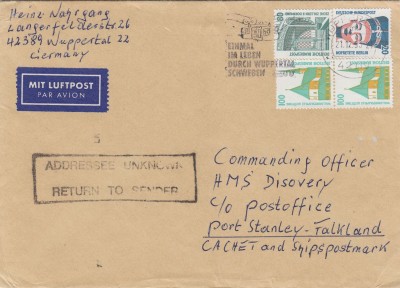 Heinz Nahrgang
Langerfelderstr.26
42389 Wuppertal 22
Germany
MIT LUFTPOST
PAR AVION
EINMAL
IM LEBEN
DURCH WUPPERTAL
SCHWEBEN
DEUTSCHE BUNDESPOST
100
20
100
100
5
ADDRESSEE UNKNOWN
RETURN TO SENDER
Commanding Officer
HMS Disovery
c/o postoffice
Port Stanley-Falkland
CACHET and Shipspostmark